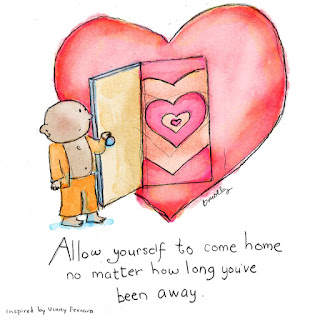 timothy
Allow yourself to come home
no matter how long you've
been away.
Inspired by Vinny Ferraro